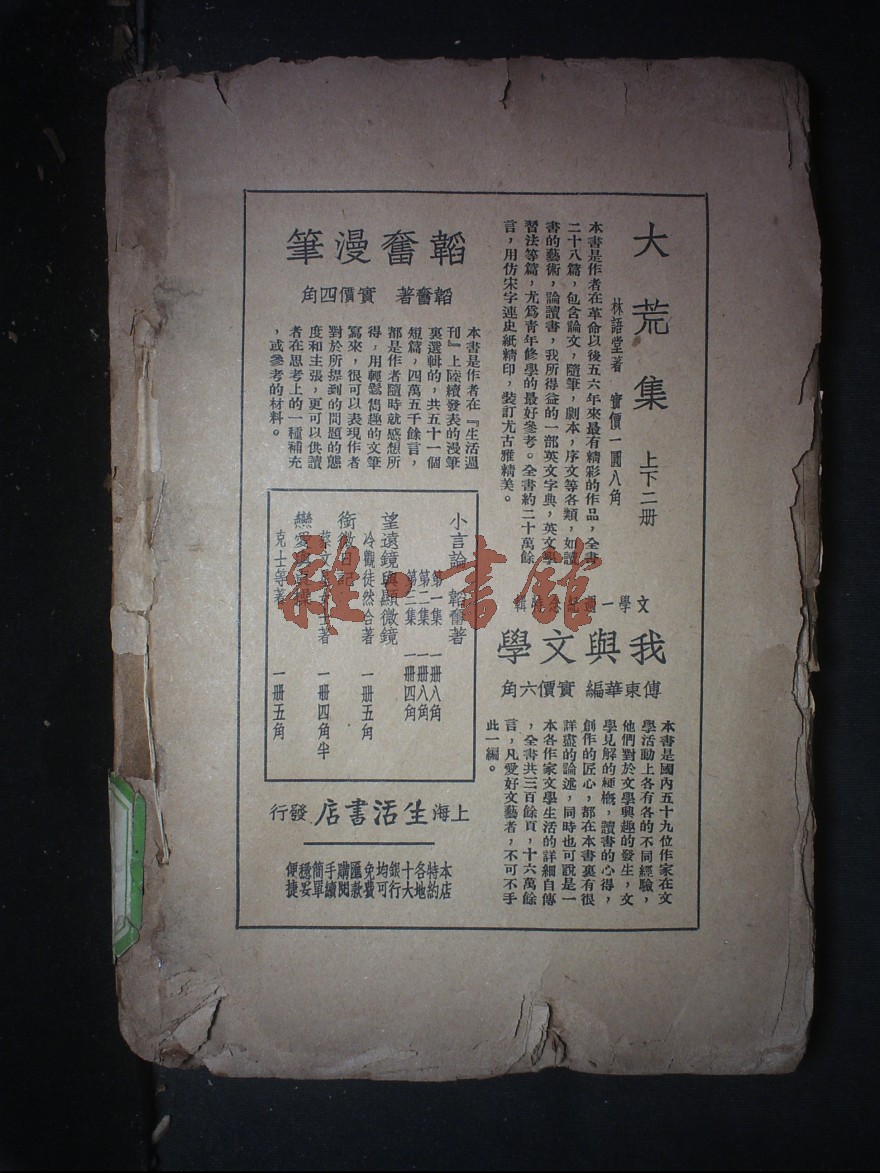 大荒集 上下二册
林語堂著 實價一圓八角
本書是作者在革命以後五六年來最有精彩的作品，全書
二十八篇，包含論文，隨筆，劇本，序文等各類，如讀
書的藝術，論讀書，我所得益的一部英文字典，英文學
習法等篇，尤爲青年修學的最好參考。全書約二十萬餘
言，用仿宋字連史紙精印，裝訂尤古雅精美。
文學一週紀念特輯
我與文學
傅東華編 實價六角
本書是國內五十九位作家在文
學活動上各有各的不同經驗，
他們對於文學興趣的發生，文
學見解的梗概，讀書的心得，
創作的匠心，都在本書裏有很
詳盡的論述，同時也可說是一
本各作家文學生活的詳細自傳
，全書共三百餘頁，十六萬餘
言，凡愛好文藝者，不可不手
此一編。
韜奮漫筆
韜奮著 實價四角
本書是作者在『生活週
刊』上陸續發表的漫筆
裏選輯的，共五十一個
短篇，四萬五千餘言，
都是作者隨時就感想所
得，用輕鬆雋趣的文筆
寫來，很可以表現作者
對於所提到的問題的態
度和主張，更可以供讀
者在思考上的一種補充
，或參考的材料。
小言論 韜奮著
第一集 一册八角
第二集 一册八角
第三集 一册四角
望遠鏡與顯微鏡
冷觀徒然合著 一册五角
銜微日記
女士著 一册四角半
戀愛與貞操
克士等著 一册五角
上海生活書店發行
本店特約各地十大銀行均可免費匯款購閱手續簡單穩妥便捷
雜·書館